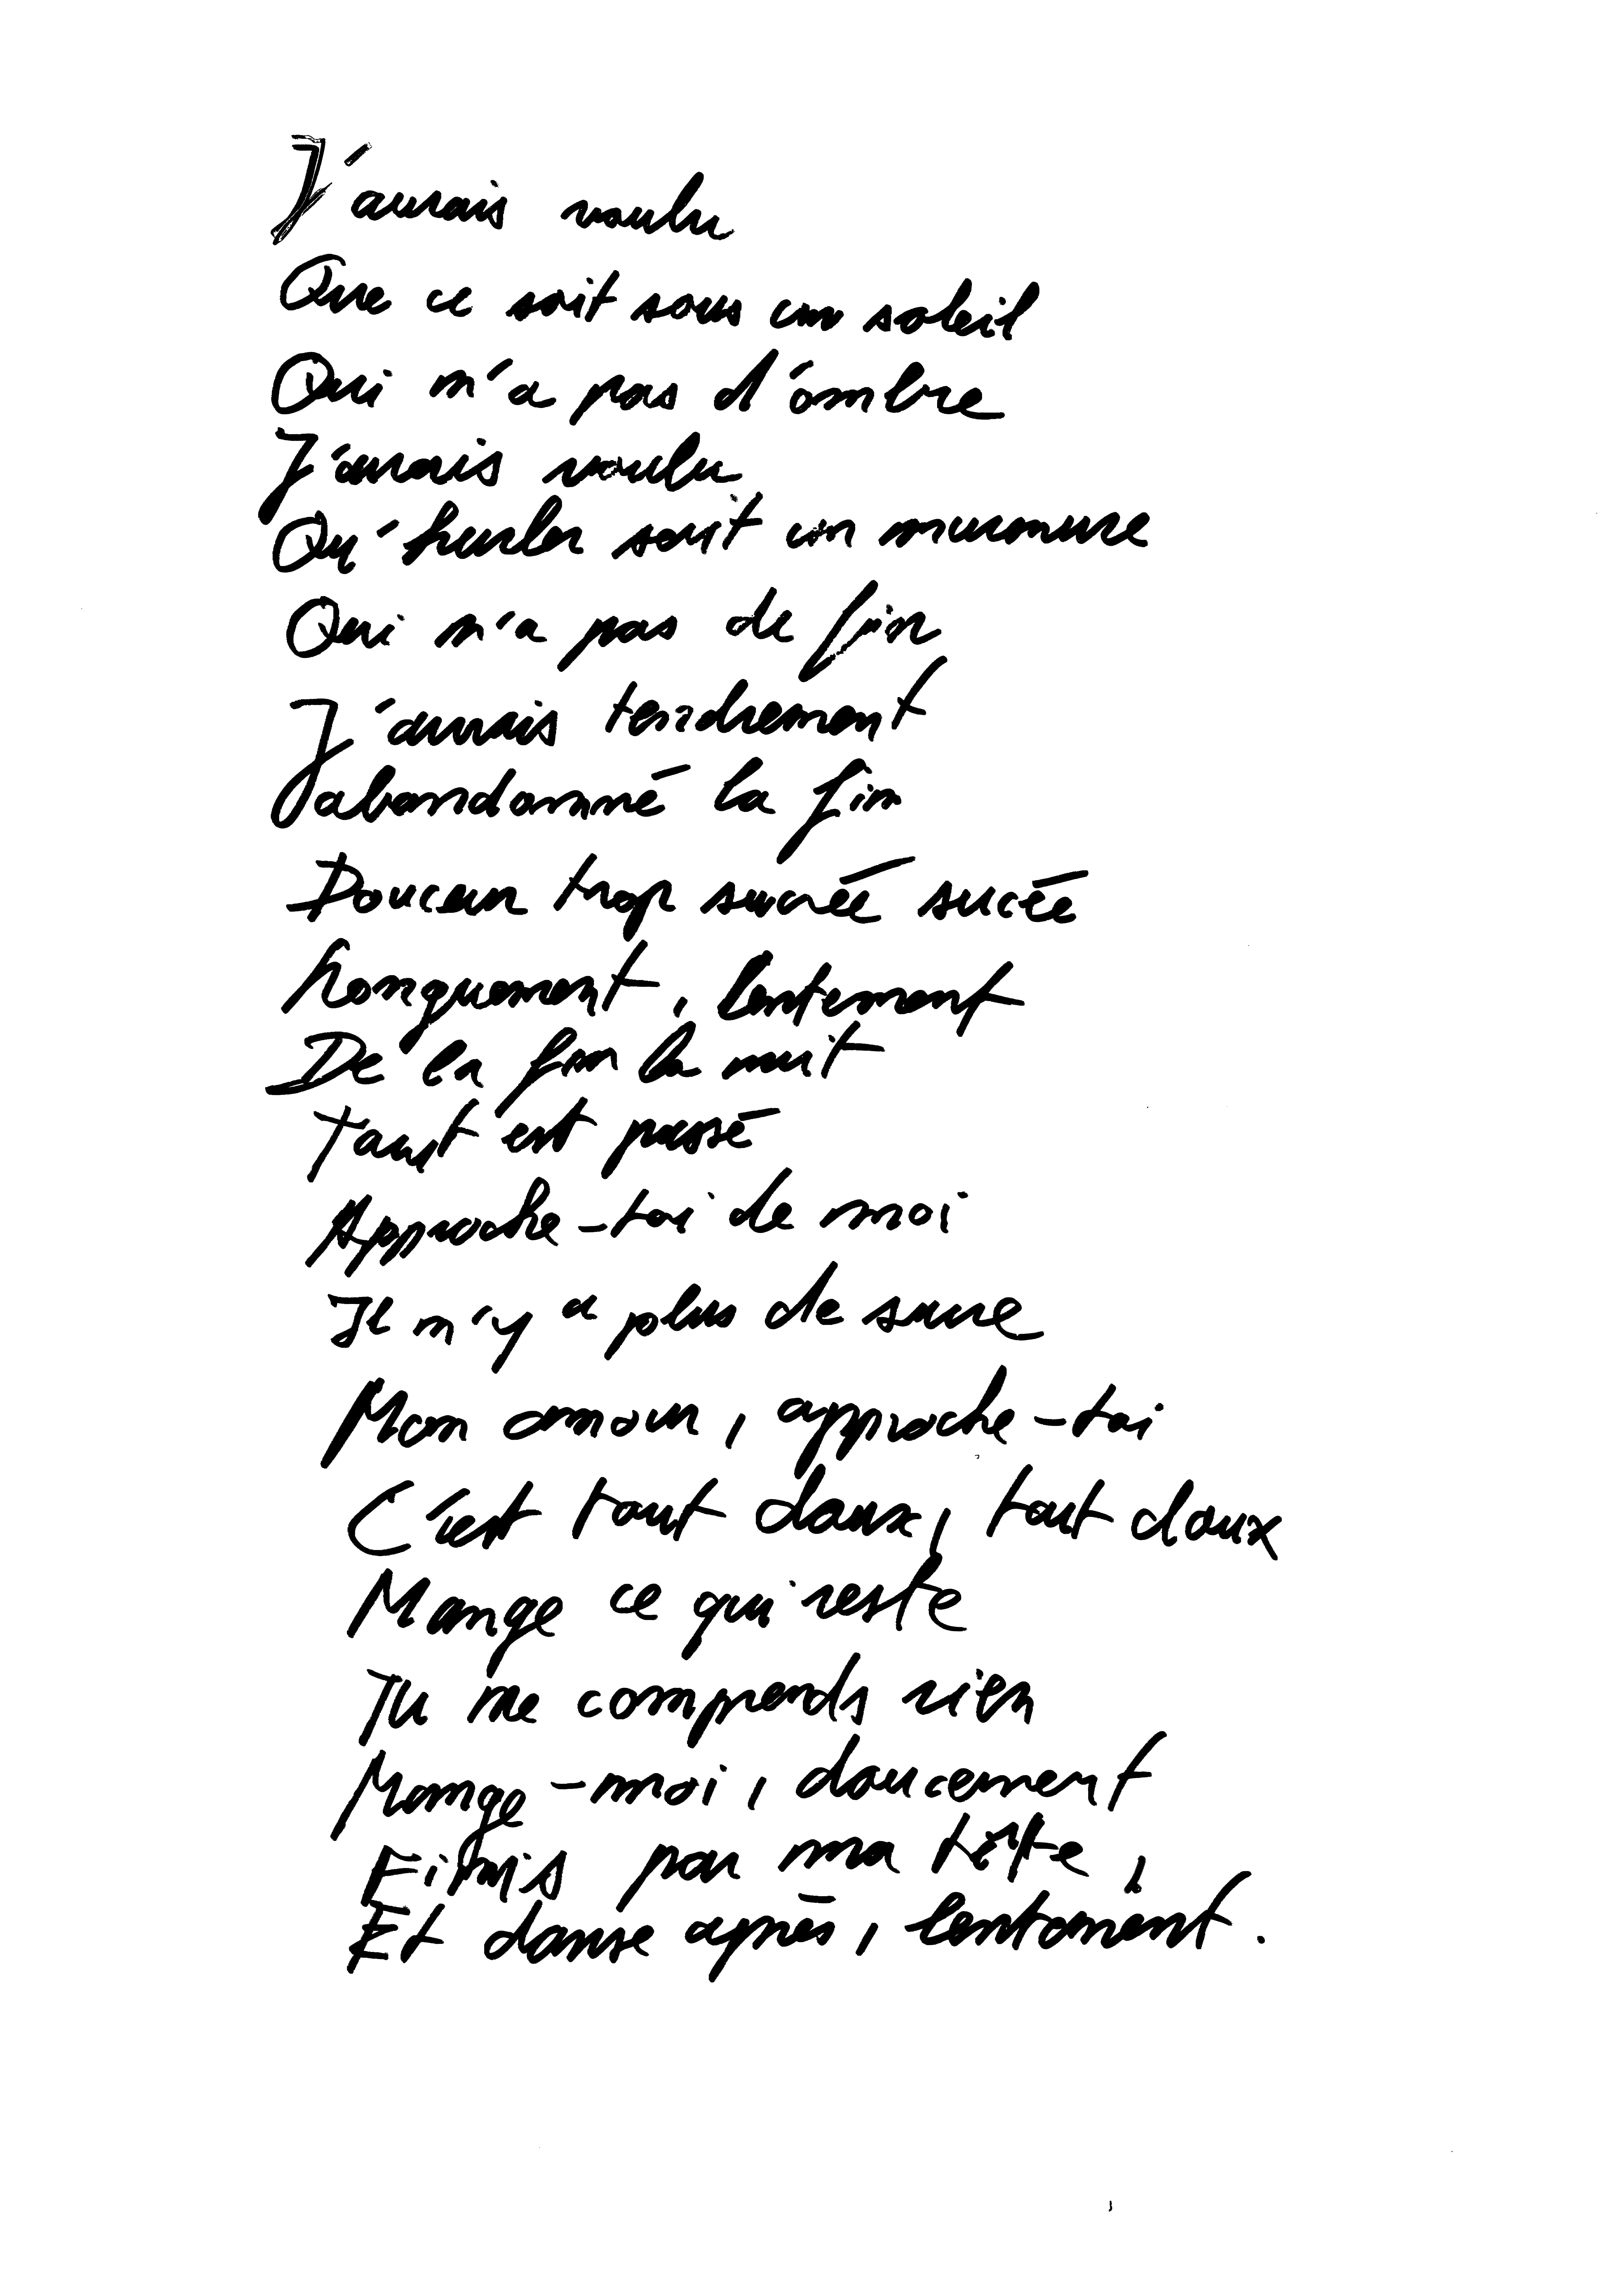 J'aurais voulu
Que ce soit sous un soleil
Qui n'a pas d'ombre
J'aurais voulu
Qu'hurler soit un murmure
Qui n'a pas de fin
J'aurais tendrement
abandonné la fin
Douceur trop sucrée sucée
longuement, lentement
De la fin la nuit
Tout est passé
Approche-toi de moi
Il n'y a plus de
Mon amour, approche-toi
C'est tout doux, tout doux
Mange ce qui reste
Tu ne comprends rien
Mange-moi, doucement
Finis par ma tête,
Et danse après, lentement.